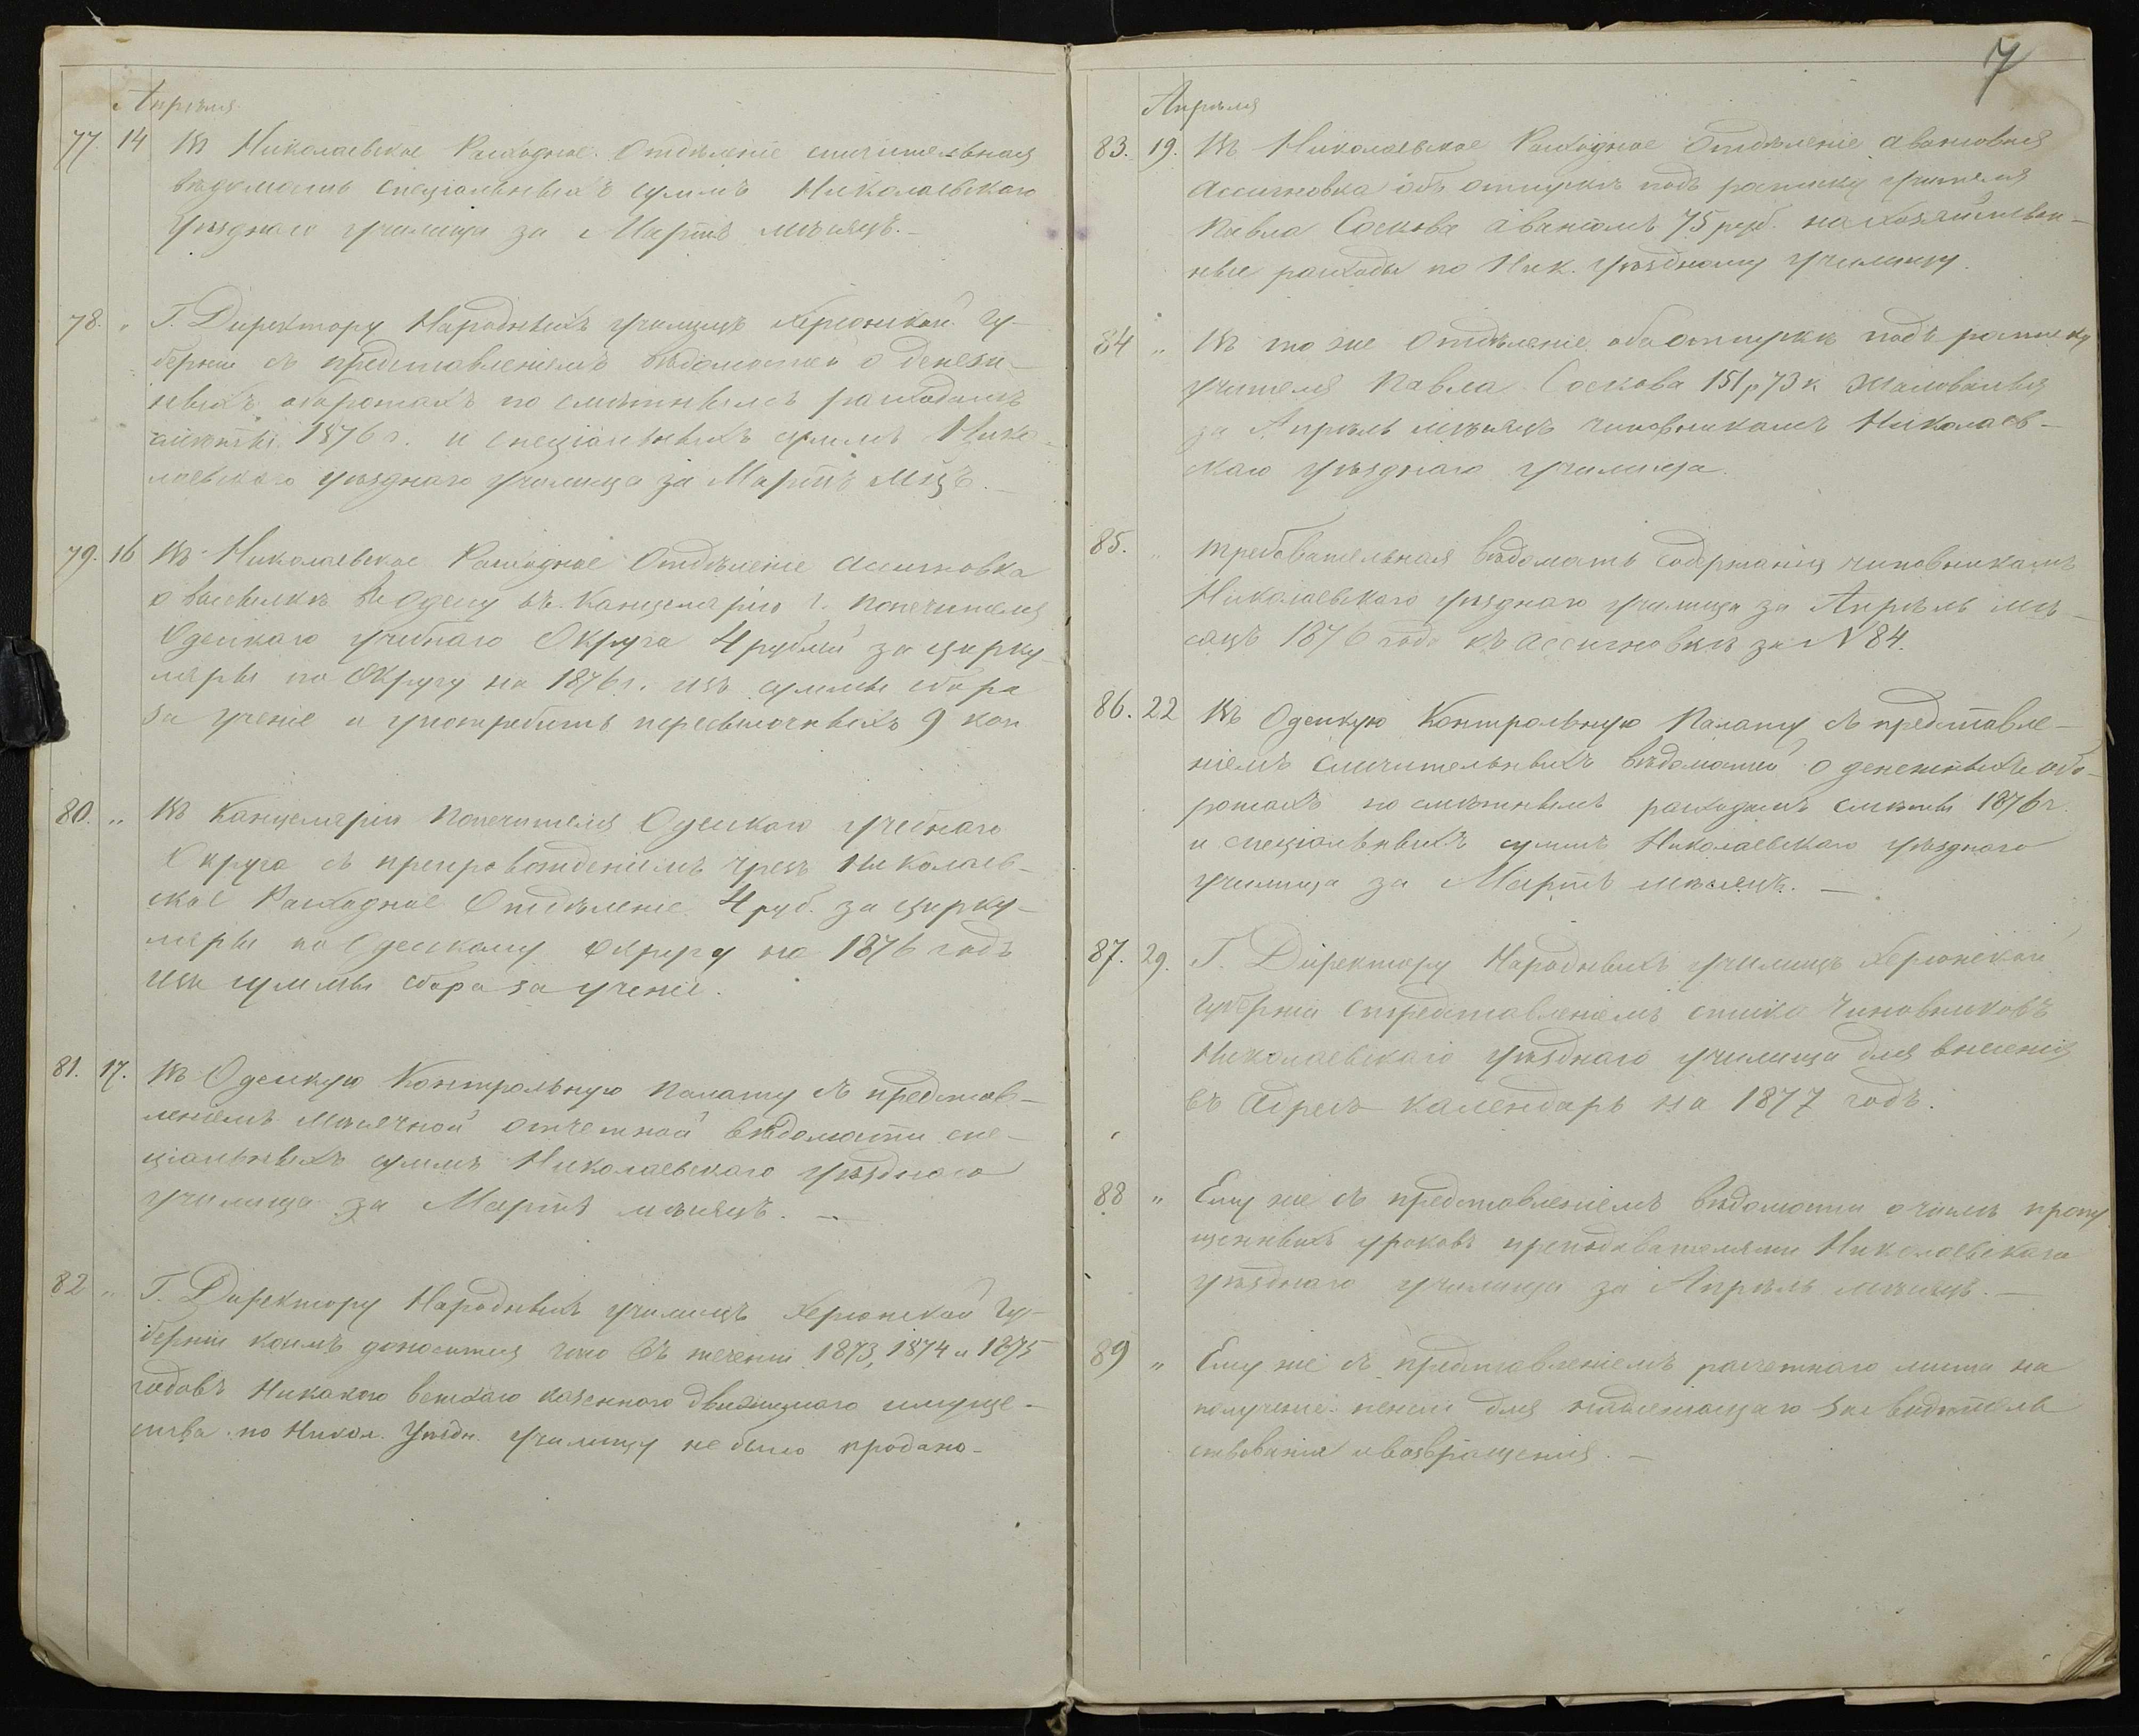 Апрѣля
77. 14 Въ Николаевское Расходное Отдѣленіе сличительная
вѣдомость спеціальныхъ суммъ Николаевскаго
Уѣзднаго училища за Мартъ мѣсяцъ. —
78. „ Г. Директору Народныхъ училищъ Херсонской Гу-
берніи съ представленіемъ вѣдомостей о денеж-
ныхъ оборотахъ по смѣтнымъ расходамъ
смѣты 1876 г. и спеціальныхъ суммъ Нико-
лаевскаго уѣзднаго училища за Мартъ мѣцъ. —
79. 16 Въ Николаевское Расходное Отдѣленіе ассигновка
о высылкѣ въ Одессу въ Канцелярію г. Попечителя
Одескаго учебнаго Округа 4 рублей за цирку-
ляры по Округу на 1876 г. изъ суммы сбора
за ученіе и употребить пересылочныхъ 9 коп
80. „ Въ Канцелярію Попечителя Одескаго учебнаго
Округа съ препровожденіемъ чрезъ Николаев-
ское Расходное Отдѣленіе 4 руб. за цирку-
ляры по Одескому округу на 1876 годъ
изъ суммы сбора за ученіе.
81. 17. Въ Одескую Контрольную Палату съ представ-
леніемъ мѣсячной отчетной вѣдомости спе-
ціальныхъ суммъ Николаевскаго уѣзднаго
училища за Мартъ мѣсяцъ. —
82 „ Г. Директору Народныхъ училищъ Херсонской Гу-
берніи коимъ доносится что въ теченіи 1873, 1874 и 1875
годовъ никакого ветхаго казеннаго движимаго имуще-
ства по Никол. Уѣздн. училищу не было продано.
7
Апрѣля
83. 19. Въ Николаевское Расходное Отдѣленіе авансовая
ассигновка объ отпускѣ подъ росписку учителя
Павла Соскова авансомъ 75 руб. на хозяйствен-
ные расходы по Ник. уѣздному училищу.
84 „ Въ то же Отдѣленіе объ отпускѣ подъ росписку
учителя Павла Соскова 151 р 73 к жалованья
за Апрѣль мѣсяцъ чиновникамъ Николаев-
скаго уѣзднаго училища.
85. „ Требовательная вѣдомость содержанія чиновникамъ
Николаевскаго уѣзднаго училища за Апрѣль мѣ-
сяцъ 1876 года къ ассигновкѣ за N 84.
86. 22 Въ Одескую Контрольную Палату съ представле-
ніемъ сличительныхъ вѣдомостей о денежныхъ обо-
ротахъ по смѣтнымъ расходамъ смѣты 1876 г.
и спеціальныхъ суммъ Николаевскаго уѣзднаго
училища за Мартъ мѣсяцъ. —
87. 29. Г. Директору Народныхъ училищъ Херсонской
Губерніи съ представленіемъ списка чиновниковъ
Николаевскаго уѣзднаго училища для внесенія
въ адресъ календарь на 1877 годъ.
88 „ Ему же съ представленіемъ вѣдомости о числѣ пропу
щенныхъ уроковъ преподавателями Николаевскаго
уѣзднаго училища за Апрѣль мѣсяцъ. —
89 „ Ему же съ представленіемъ расчетнаго листа на
полученіе пенсіи для надлежащаго засвидѣтель
ствованія и возвращенія. —